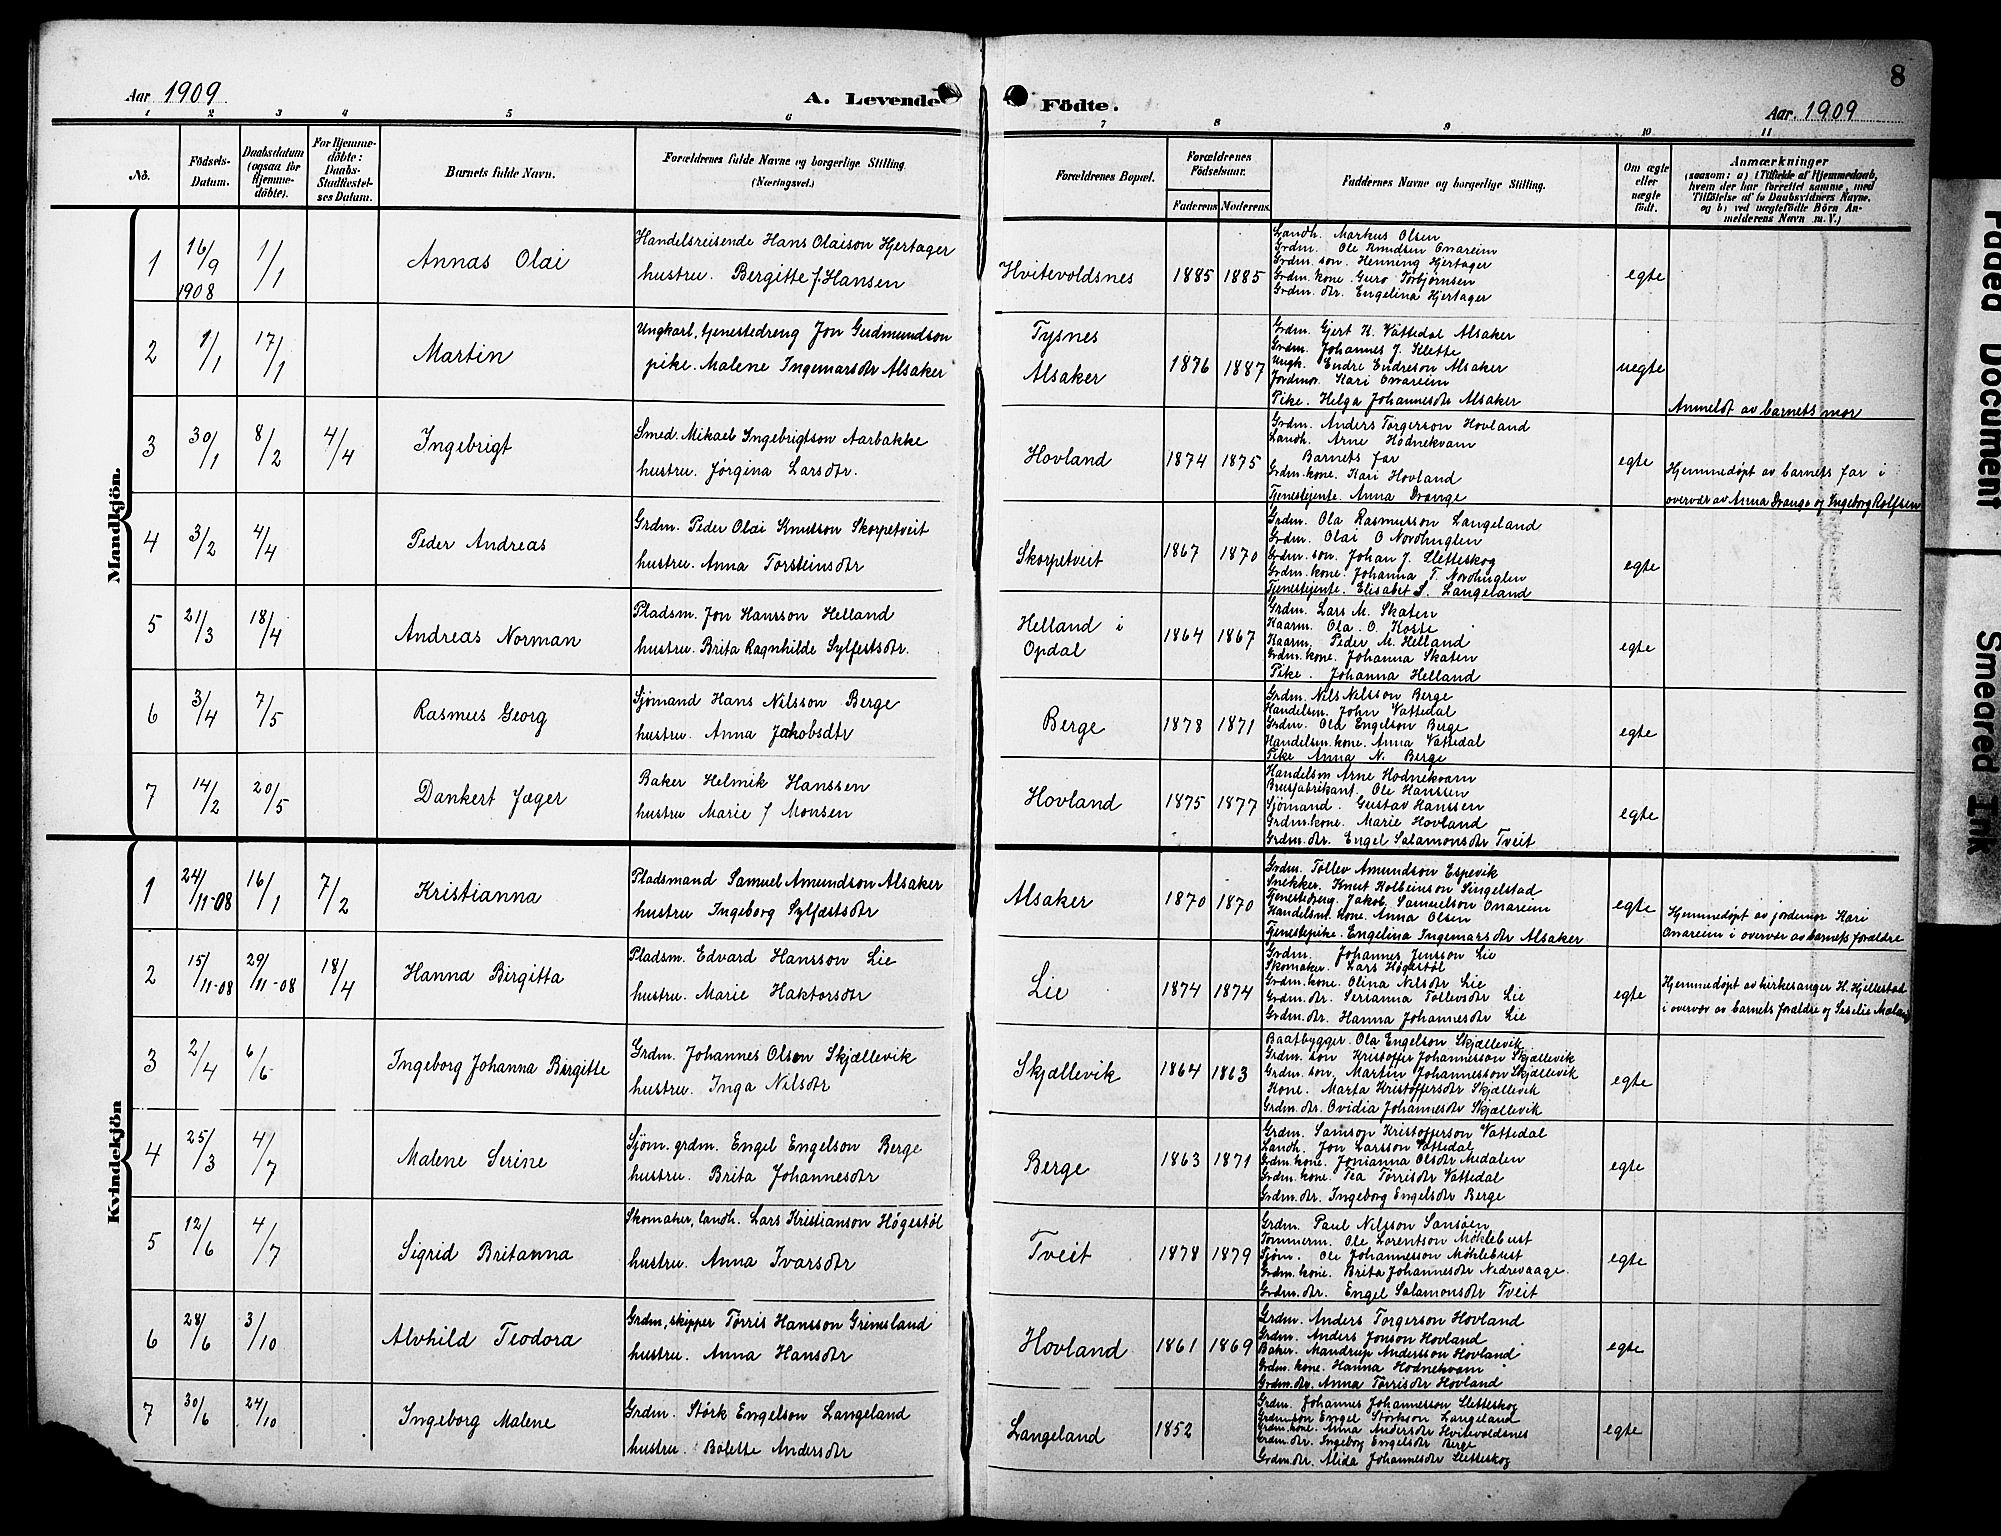 Aar 1909
A. Levende Födte.
Aar 1909
8
1 2 3 4 5 6 7 8 9 10 11
No.
Födsels-Datum.
Daabsdatum (ogsaa for Hjemmedöbte).
For Hjemmedöbte: Daabs-Stadfæstelses Datum.
Barnets fulde Navn.
Forældrenes fulde Navne og borgerlige Stilling. (Næringsvei.)
Forældrenes Bopæl.
Forældrenes Födselsaar.
Faderens Moderens
Faddernes Navne og borgerlige Stilling.
Om ægte eller uægte født.
Anmærkninger
(saasom: a) i Tilfælde af Hjemmedaab,
hvem der har forrettet samme, med
Tilföielse af to Daabsvidners Navne,
og b) ved uægtefödte Börn An-
melderens Navn m. V.)
Mandkjön.
1 16/9 1908 1/1 Annas Olai
Handelsreisende Hans Olaison Hjertager
hustru. Bergitte f. Hansen
Hvitevoldsnes 1885 1885
Landh. Markus Olsen
Grdm. Ole Knudsen Onareim
Grdm. søn. Henning Hjertager
Grdm. kone. Guro Torbjørnsen
Grdm. dtr. Engelina Hjertager
egte
2 9/1 17/1 Martin
Ungkarl, tjenestedreng Jon Gudmundson
pike. Malene Ingemarsdtr Alsaker
Tysnes
Alsaker 1876 1887
Grdm. Gjert K. Vattedal Alsaker
Grdm. Johannes J. Klette
Ungk. Endre Endreson Alsaker
Jordmor. Kari Onareim
Pike. Helga Johannesdtr Alsaker
uegte
Anmeldt av barnets mor
3 30/1 8/2 4/4 Ingebrigt
Smed. Mikael Ingebrigtson Aarbakke
hustru. Jørgina Larsdtr.
Hovland 1874 1875
Grdm. Anders Torgerson Hovland
Landh. Arne Hodnekvam
Barnets far
Grdm. kone. Kari Hovland
Tjenestejente. Anna Drange
egte
Hjemmedøpt av barnets far i
overvær av Anna Drange og Ingeborg Rolfsen
4 3/2 4/4 Peder Andreas
Grdm. Peder Olai Knutson Skorpetveit
hustru. Anna Torsteinsdtr
Skorpetveit 1867 1870
Grdm. Ola Rasmusson Langeland
Grdm. Olai O Nordhuglen
Grdm. søn. Johan J. Sletteskog
Grdm. kone. Johanna T. Nordhuglen
Tjenestejente. Elisabet S. Langeland
egte
5 21/3 18/4 Andreas Norman
Pladsm. Jon Hansson Helland
hustru. Brita Ragnhilde Sylfestsdtr.
Helland i
Opdal 1864 1867
Grdm. Lars M. Skaten
Kaarm. Ola. O. Koste
Kaarm. Peder M. Helland
Grdm. kone. Johanna Skaten
Pike. Johanna Helland
egte
6 3/4 7/5 Rasmus Georg
Sjømand Hans Nilsson Berge
hustru. Anna Jakobsdtr
Berge 1878 1871
Grdm. Nils Nilsson Berge
Handelsm. John Vattedal
Grdm. Ola Engelson Berge
Handelsm. kone. Anna Vattedal
Pike Anna N. Berge
egte
7 14/2 20/5 Dankert Jæger
Baker Helmik Hanssen
hustru Marie f Monsen
Hovland 1875 1877
Handelsm Arne Hodnekvam
Brusfabrikant. Ole Hanssen
Sjømand. Gustav Hanssen
Grdm. kone. Marie Hovland
Grdm. dtr. Engel Salamonsdtr Tveit
egte
Kvindekjön
1 24/11-08 16/1 7/2 Kristianna
Pladsmand Samuel Amundson Alsaker
hustru Ingeborg Sylfæstsdtr
Alsaker 1870 1870
Grdm. Tollev Amundson Espevik
Snekker. Knut Kolbeinson Singelstad
Tjenestedreng. Jakob Samuelson Onareim
Handelsm. kone. Anna Olsen
Tjenestepike. Engelina Ingemarsdtr Alsaker
egte
Hjemmedøpt av jordemor Kari
Onareim i overvær av barnets forældre
2 15/11-08 29/11-08 18/4 Hanna Birgitta
Pladsm. Edvard Hansson Lie
hustru. Marie Haktorsdtr
Lie 1874 1874
Grdm. Johannes Jensson Lie
Skomaker. Lars Høgestøl
Grdm. kone. Olina Nilsdtr Lie
Grdm. dtr. Serianna Tollevsdtr Lie
Grdm. dtr. Hanna Johannesdtr Lie
egte
Hjemmedøpt av kirkesanger H. Hjellestad
i overvær av barnets forældre og Seselie
3 2/4 6/6 Ingeborg Johanna Birgitte
Grdm. Johannes Olsen Skjællevik
hustru. Inga Nilsdtr
Skjællevik 1864 1863
Baatbygger. Ola Engelson Skjællevik
Grdm. søn Kristoffer Johannesson Skjællevik
Grdm. søn. Martin Johannesson Skjællevik
Kone. Marta Kristoffersdtr Skjællevik
Grdm. dtr. Ovidia Johannesdtr Skjællevik
egte
4 25/3 4/7 Malene Serine
Sjøm. grdm. Engel Engelson Berge
hustru. Brita Johannesdtr
Berge 1863 1871
Grdm. Samson Kristofferson Vattedal
Landh. Jon Larsson Vattedal
Grdm. kone. Jonianna Olsdtr Medalen
Grdm. kone. Tea Tørrisdtr Vattedal
Grdm. dtr. Ingeborg Engelsdtr Berge
egte
5 12/6 4/7 Sigrid Britanna
Skomaker, landh. Lars Kristianson Høgestøl
hustru. Anna Ivarsdtr
Tveit 1878 1879
Grdm. Paul Nilsson Sansøen
Tømmerm. Ole Lorentson Møklebust
Sjøm. Ole Johannesson Møklebust
Grdm. kone. Brita Johannesdtr Nedrevaage.
Grdm. dtr. Engel Salamonsdtr Tveit
egte
6 28/6 3/10 Alvhild Teodora
Grdm, skipper Tørris Hansson Grimsland
hustru. Anna Hansdtr
Hovland 1861 1869
Grdm. Anders Torgerson Hovland
Grdm. Anders Jonson Hovland
Baker. Mandrup Andersson Hovland
Grdm. kone. Hanna Hodnekvam
Grdm. dtr. Anna Tørrisdtr Hovland
egte
7 30/6 24/10 Ingeborg Malene
Grdm. Størk Engelson Langeland
hustru. Bolette Andersdtr
Langeland 1852
Grdm. Johannes Johannesson Sletteskog
Grdm. søn Engel Størkson Langeland
Grdm. kone. Anna Andersdtr Hvitevoldsnes
Grdm. dtr. Ingeborg Engelsdtr Berge
Grdm. dtr. Alida Johannesdtr Sletteskog
egte
Faded Document
Smeared Ink